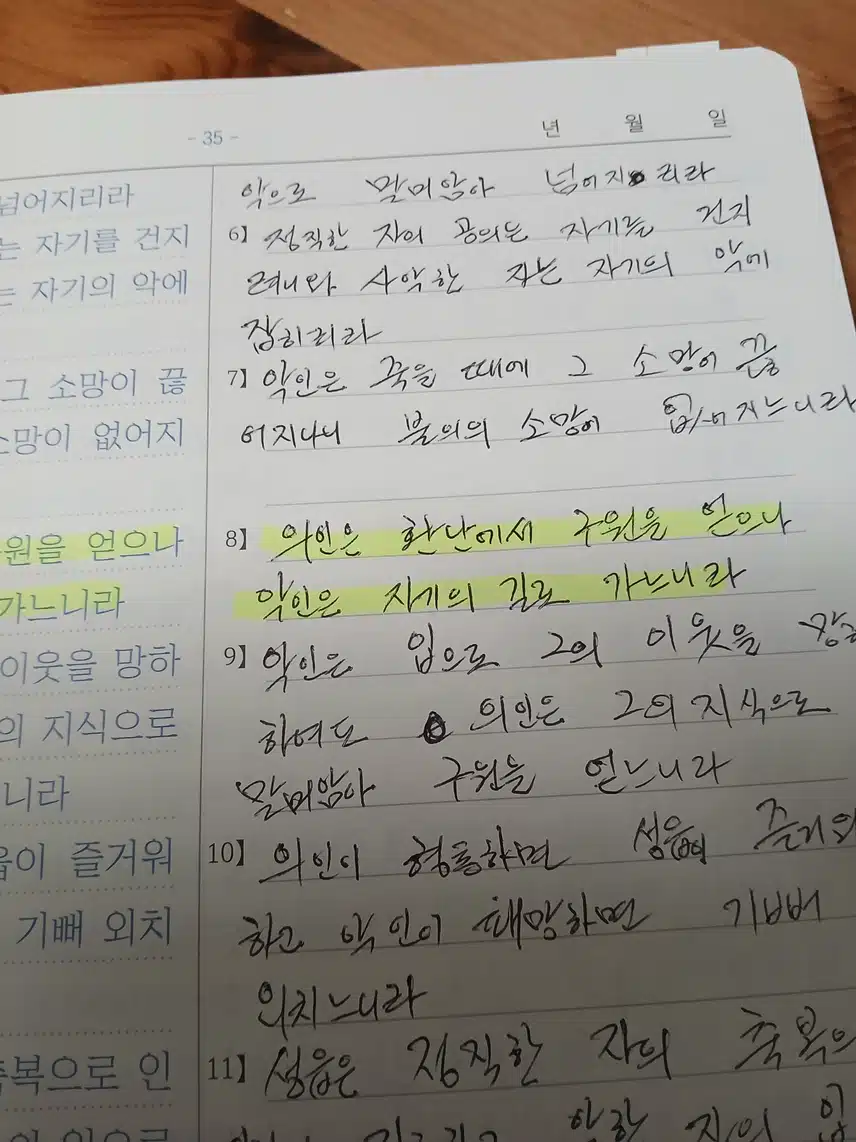 - 35 -
년 월 일
넘어지리라
는 자기를 건지
는 자기의 악에
그 소망이 끊
소망이 없어지
원을 얻으나
가느니라
이웃을 망하
의 지식으로
니라
읍이 즐거워
기뻐 외치
복으로 인
악으로 말미암아 넘어지리라
6] 정직한 자의 공의는 자기를 건지
려니와 사악한 자는 자기의 악에
잡히리라
7] 악인은 죽을 때에 그 소망이 끊
어지나니 불의의 소망이 없어지느니라
8] 의인은 환난에서 구원을 얻으나
악인은 자기의 길로 가느니라
9] 악인은 입으로 그의 이웃을
하여도 의인은 그의 지식으로
말미암아 구원을 얻느니라
10] 의인이 형통하면 성읍이 즐거워
하고 악인이 패망하면 기뻐
외치느니라
11] 성읍은 정직한 자의 축복으
악한 자의 입